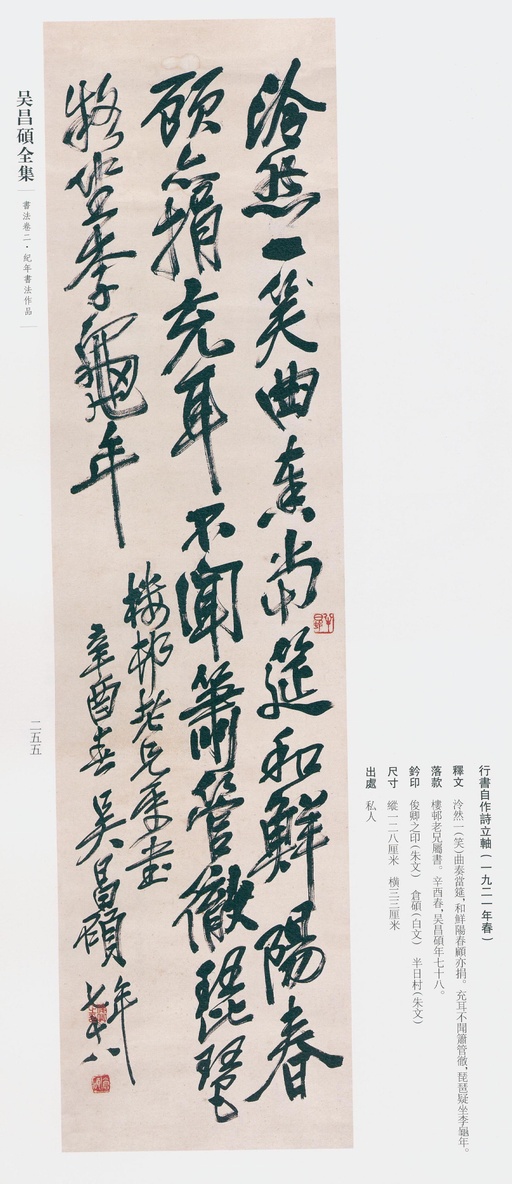 行書自作詩立軸（一九二一年春）
釋文　泠然一（笑）曲奏當筵，和鮮陽春顧亦捐。充耳不聞簫管徹，琵琶疑坐李龜年。
落款　樓邨老兄屬書。辛酉春，吳昌碩年七十八。
鈐印　俊卿之印（朱文）　倉碩（白文）　半日村（朱文）
尺寸　縱一二八厘米　橫三三厘米
出處　私人
泠然一笑曲奏當筵和鮮陽春
顧亦捐充耳不聞簫管徹琵琶
疑坐李龜年
樓邨老兄屬書
辛酉春吳昌碩年七十八
吴昌碩全集
書法卷二·紀年書法作品
二五五